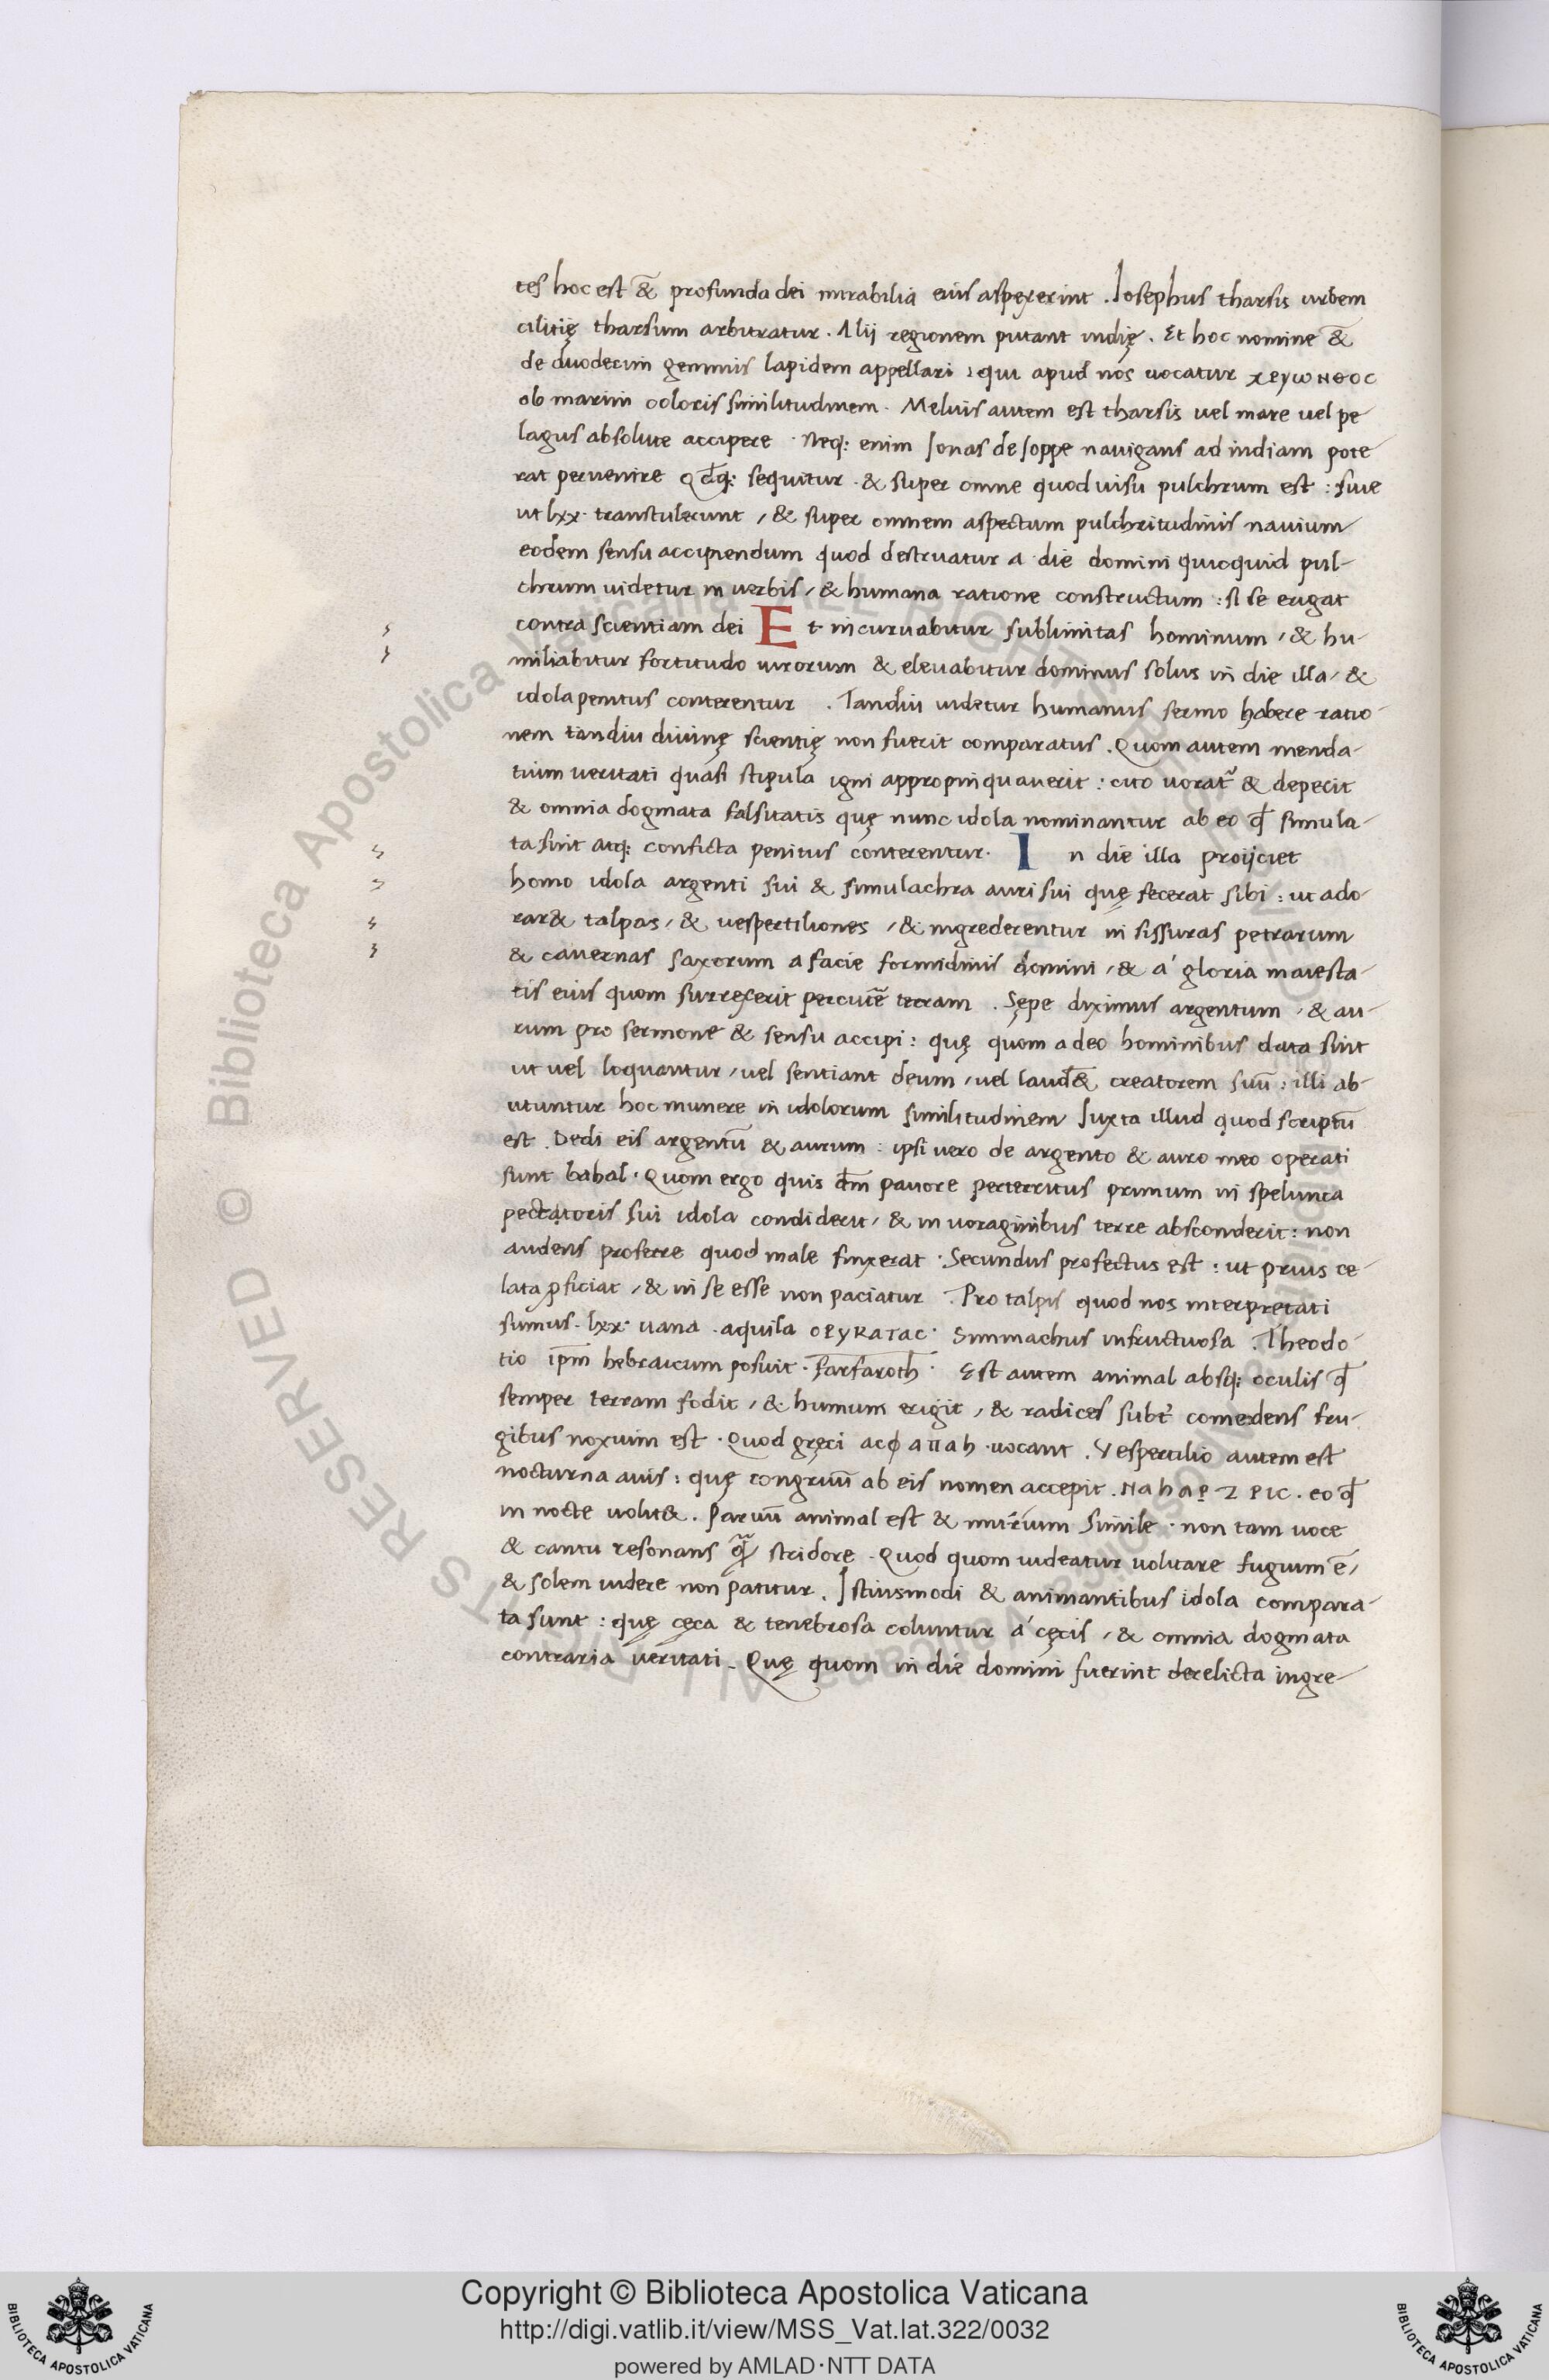 tes hoc est &̄ profunda dei mirabilia eius aspexerint . Iosephus tharsis urbem
cilitię tharsum arbitratur . Alij regionem putant indię . Et hoc nomine &̄
de duodecim gemmis lapidem appellari : qui apud nos uocatur χρyωнθoc
ob marini coloris similitudinem . Melius autem est tharsis uel mare uel pe-
lagus absolute accipere . Neq; enim Ionas de Ioppe nauigans ad indiam pote-
rat peruenire Qđq; sequitur . & super omne quod uisu pulchrum est : siue
ut lxx . transtulerunt / & super omnem aspectum pulchritudinis nauium
eodem sensu accipiendum quod destruatur a die domini quicquid pul-
chrum uidetur in verbis / & humana ratione constructum : si se erigat
contra scientiam dei Et incuruabitur sublimitas hominum / & hu-
miliabitur fortitudo uirorum & eleuabitur dominus solus in die illa / &
idola penitus conterentur . Tandiu uidetur humanus sermo habere ratio-
nem tandiu diuinę scientię non fuerit comparatus . Quom autem menda-
tium ueritati quasi stipula igni appropinquauerit : cito uorat᷑ & deperit
& omnia dogmata falsitatis quę nunc idola nominantur ab eo ꝙ simula-
ta sint atq; conficta penitus conterentur . In die illa proijciet
homo idola argenti sui & simulachra auri sui quę fecerat sibi : ut ado-
rar& talpas / & uespertiliones / & ingrederentur in fissuras petrarum
& cauernas saxorum a facie formidinis domini / & á gloria maiesta-
tis eius quom surrexerit percutē terram . Sępe diximus argentum / & au-
rum pro sermone & sensu accipi : quę quom a deo hominibus data sint
ut uel loquantur / uel sentiant deum / uel laud&̄ creatorem suū : illi ab-
utuntur hoc munere in idolorum similitudinem Iuxta illud quod scriptū
est . Dedi eis argentū & aurum : ipsi uero de argento & auro meo operati
sunt babal . Quom ergo quis dm̄ pauore perterritus primum in spelunca
peccatoris sui idola condiderit / & in uoraginibus terre absconderit : non
audens proferre quod male finxerat . Secundus profectus est : ut prius ce-
lata ꝓficiat / & in se esse non paciatur . Pro talpis quod nos interpretati
sumus . lxx . uana . aquila oρyκaτac . Simmachus infructuosa . Theodo-
tio ip̄m hebraicum posuit . farfaroth . Est autem animal absq; oculis ꝙ
semper terram fodit / & humum erigit / & radices subt᷑ comedens fru-
gibus noxium est . Quod gręci acφaιιah . uocant . Vespertilio autem est
nocturna auis : quę congruū ab eis nomen accepit . Nahaρ z ρic . eo ꝙ
in nocte uolit& . Paruū animal est & murium simile . non tam uoce
& cantu resonans ꝙ̃ stridore . Quod quom uideatur uolitare fugium ē /
& solem uidere non patitur . Istiusmodi & animantibus idola compara-
ta sunt : quę cęca & tenebrosa coluntur á cęcis / & omnia dogmata
contraria ueritati . Quę quom in die domini fuerint derelicta ingre-
© Biblioteca Apostolica Vaticana ALL RIGHTS RESERVED
Copyright © Biblioteca Apostolica Vaticana
http://digi.vatlib.it/view/MSS_Vat.lat.322/0032
powered by AMLAD·NTT DATA
BIBLIOTECA APOSTOLICA VATICANA
BIBLIOTECA APOSTOLICA VATICANA